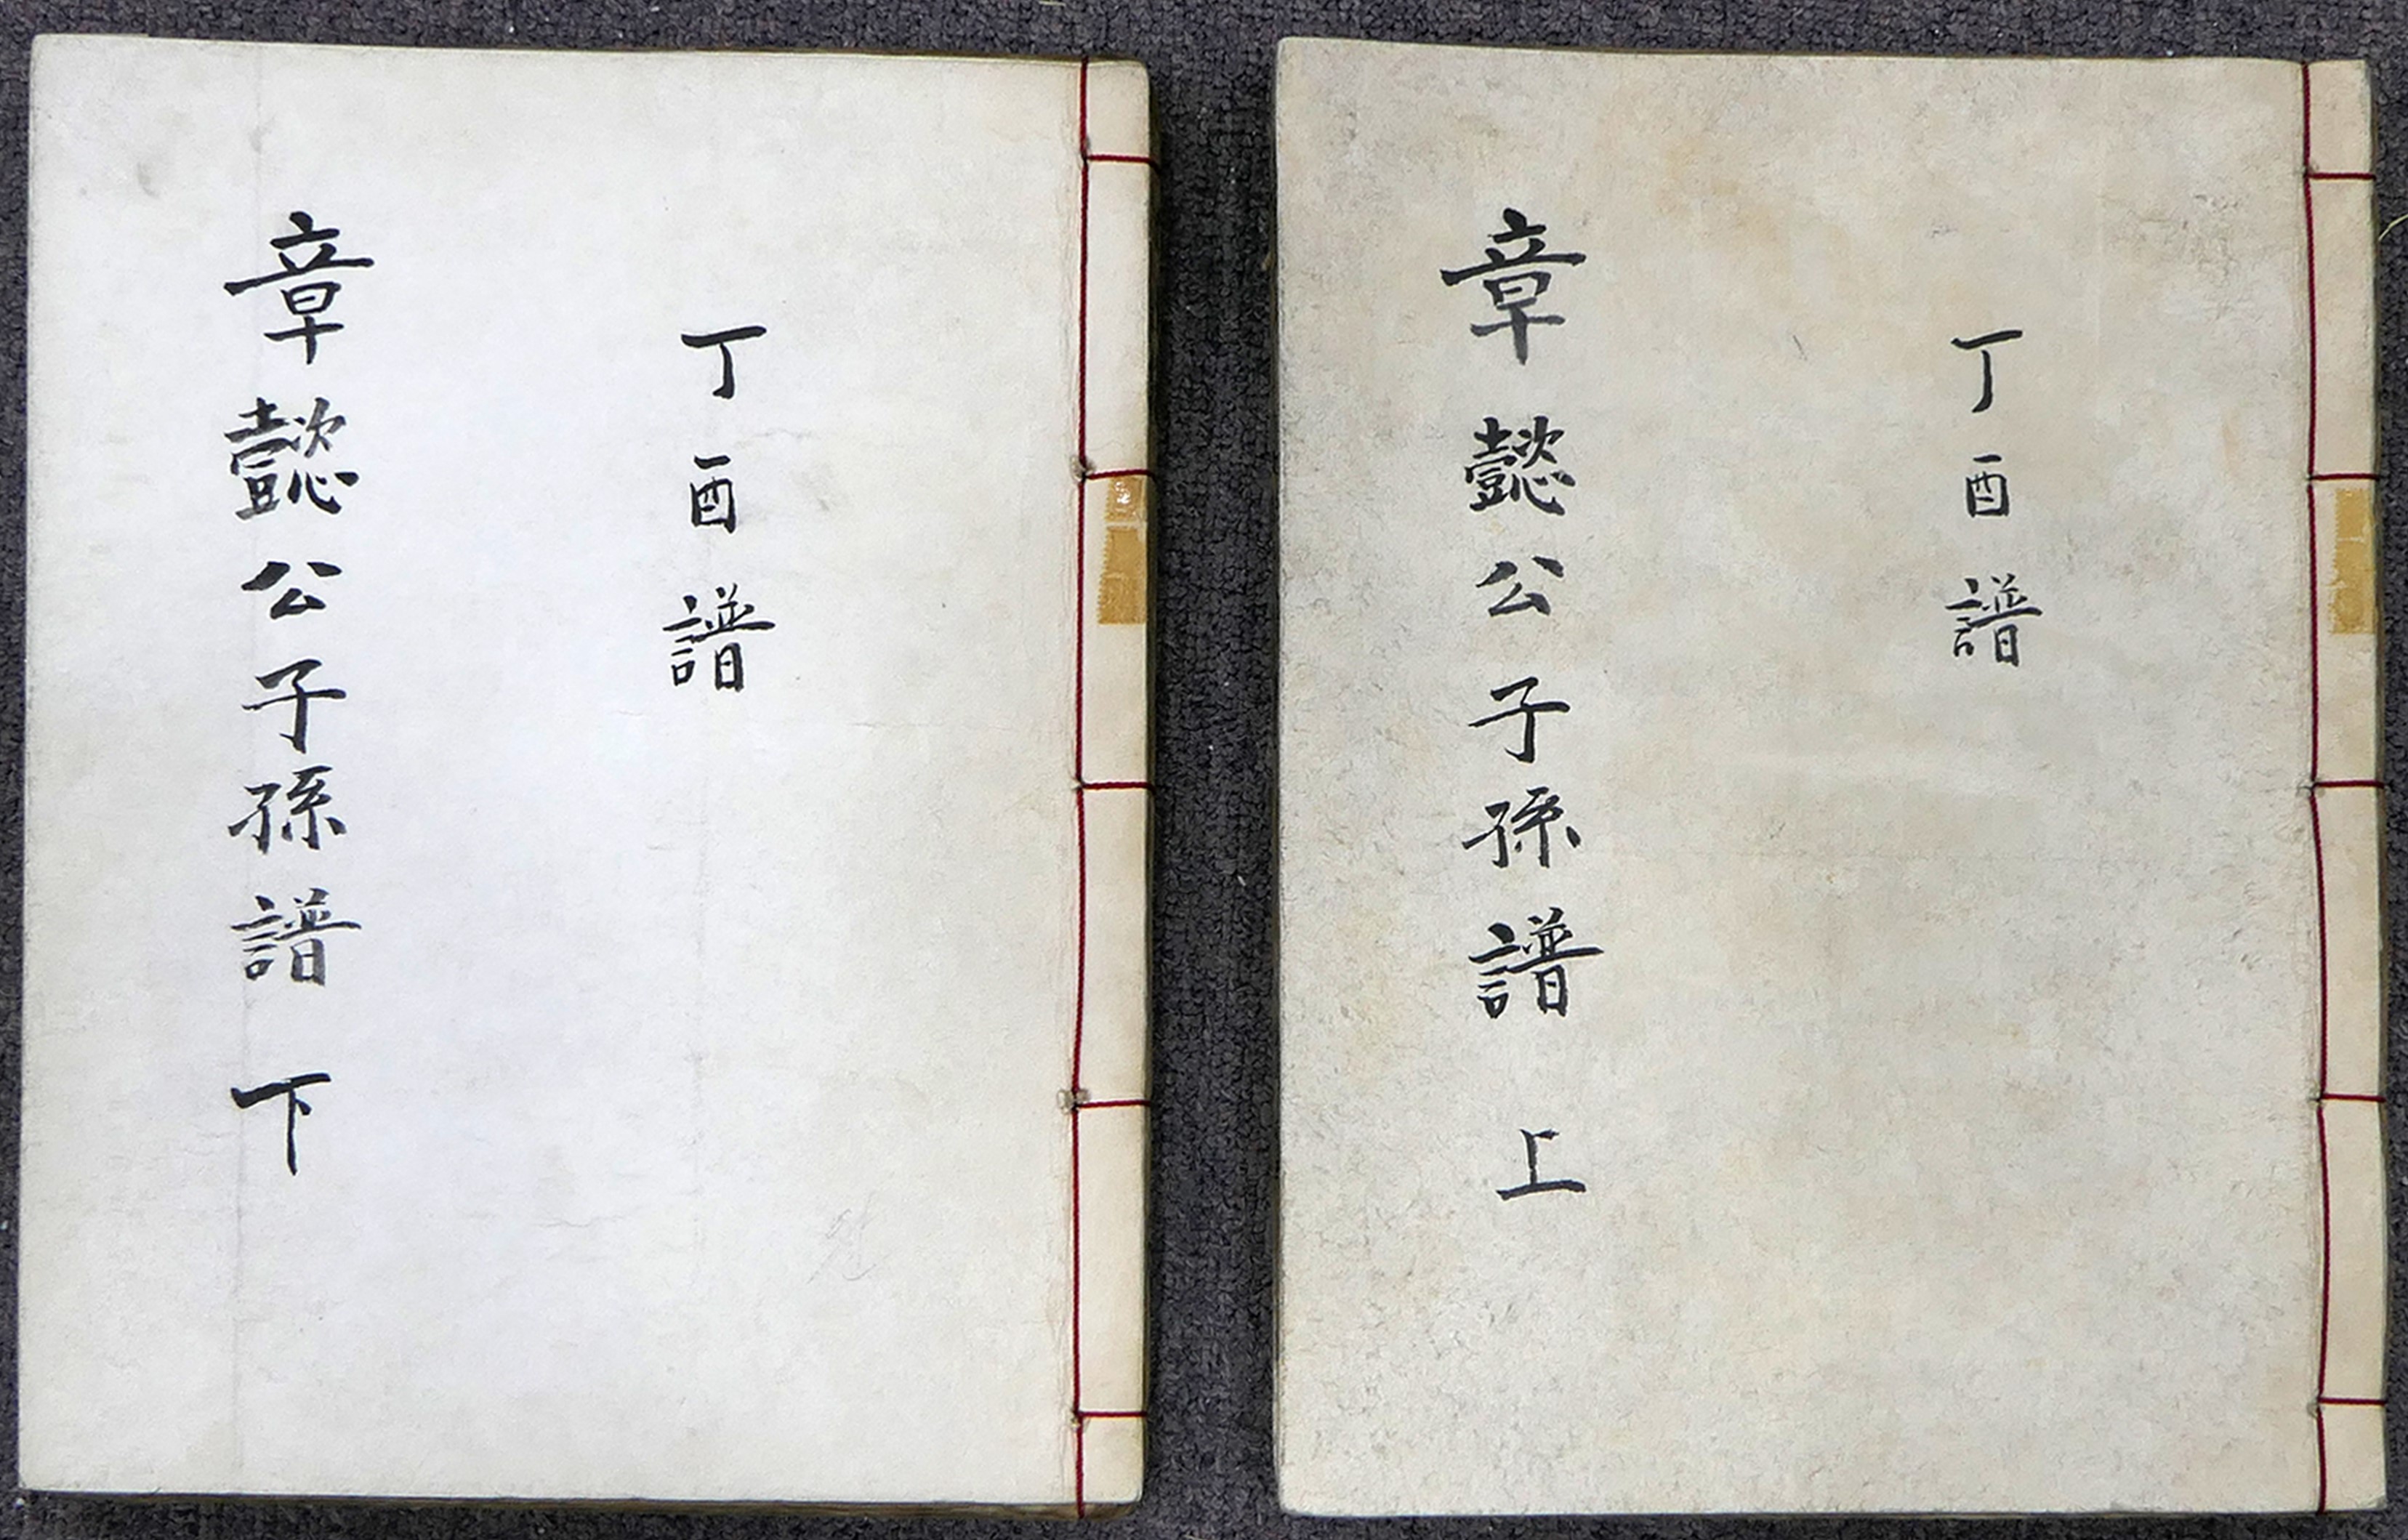 丁酉譜
章懿公子孫譜 上
丁酉譜
章懿公子孫譜 下